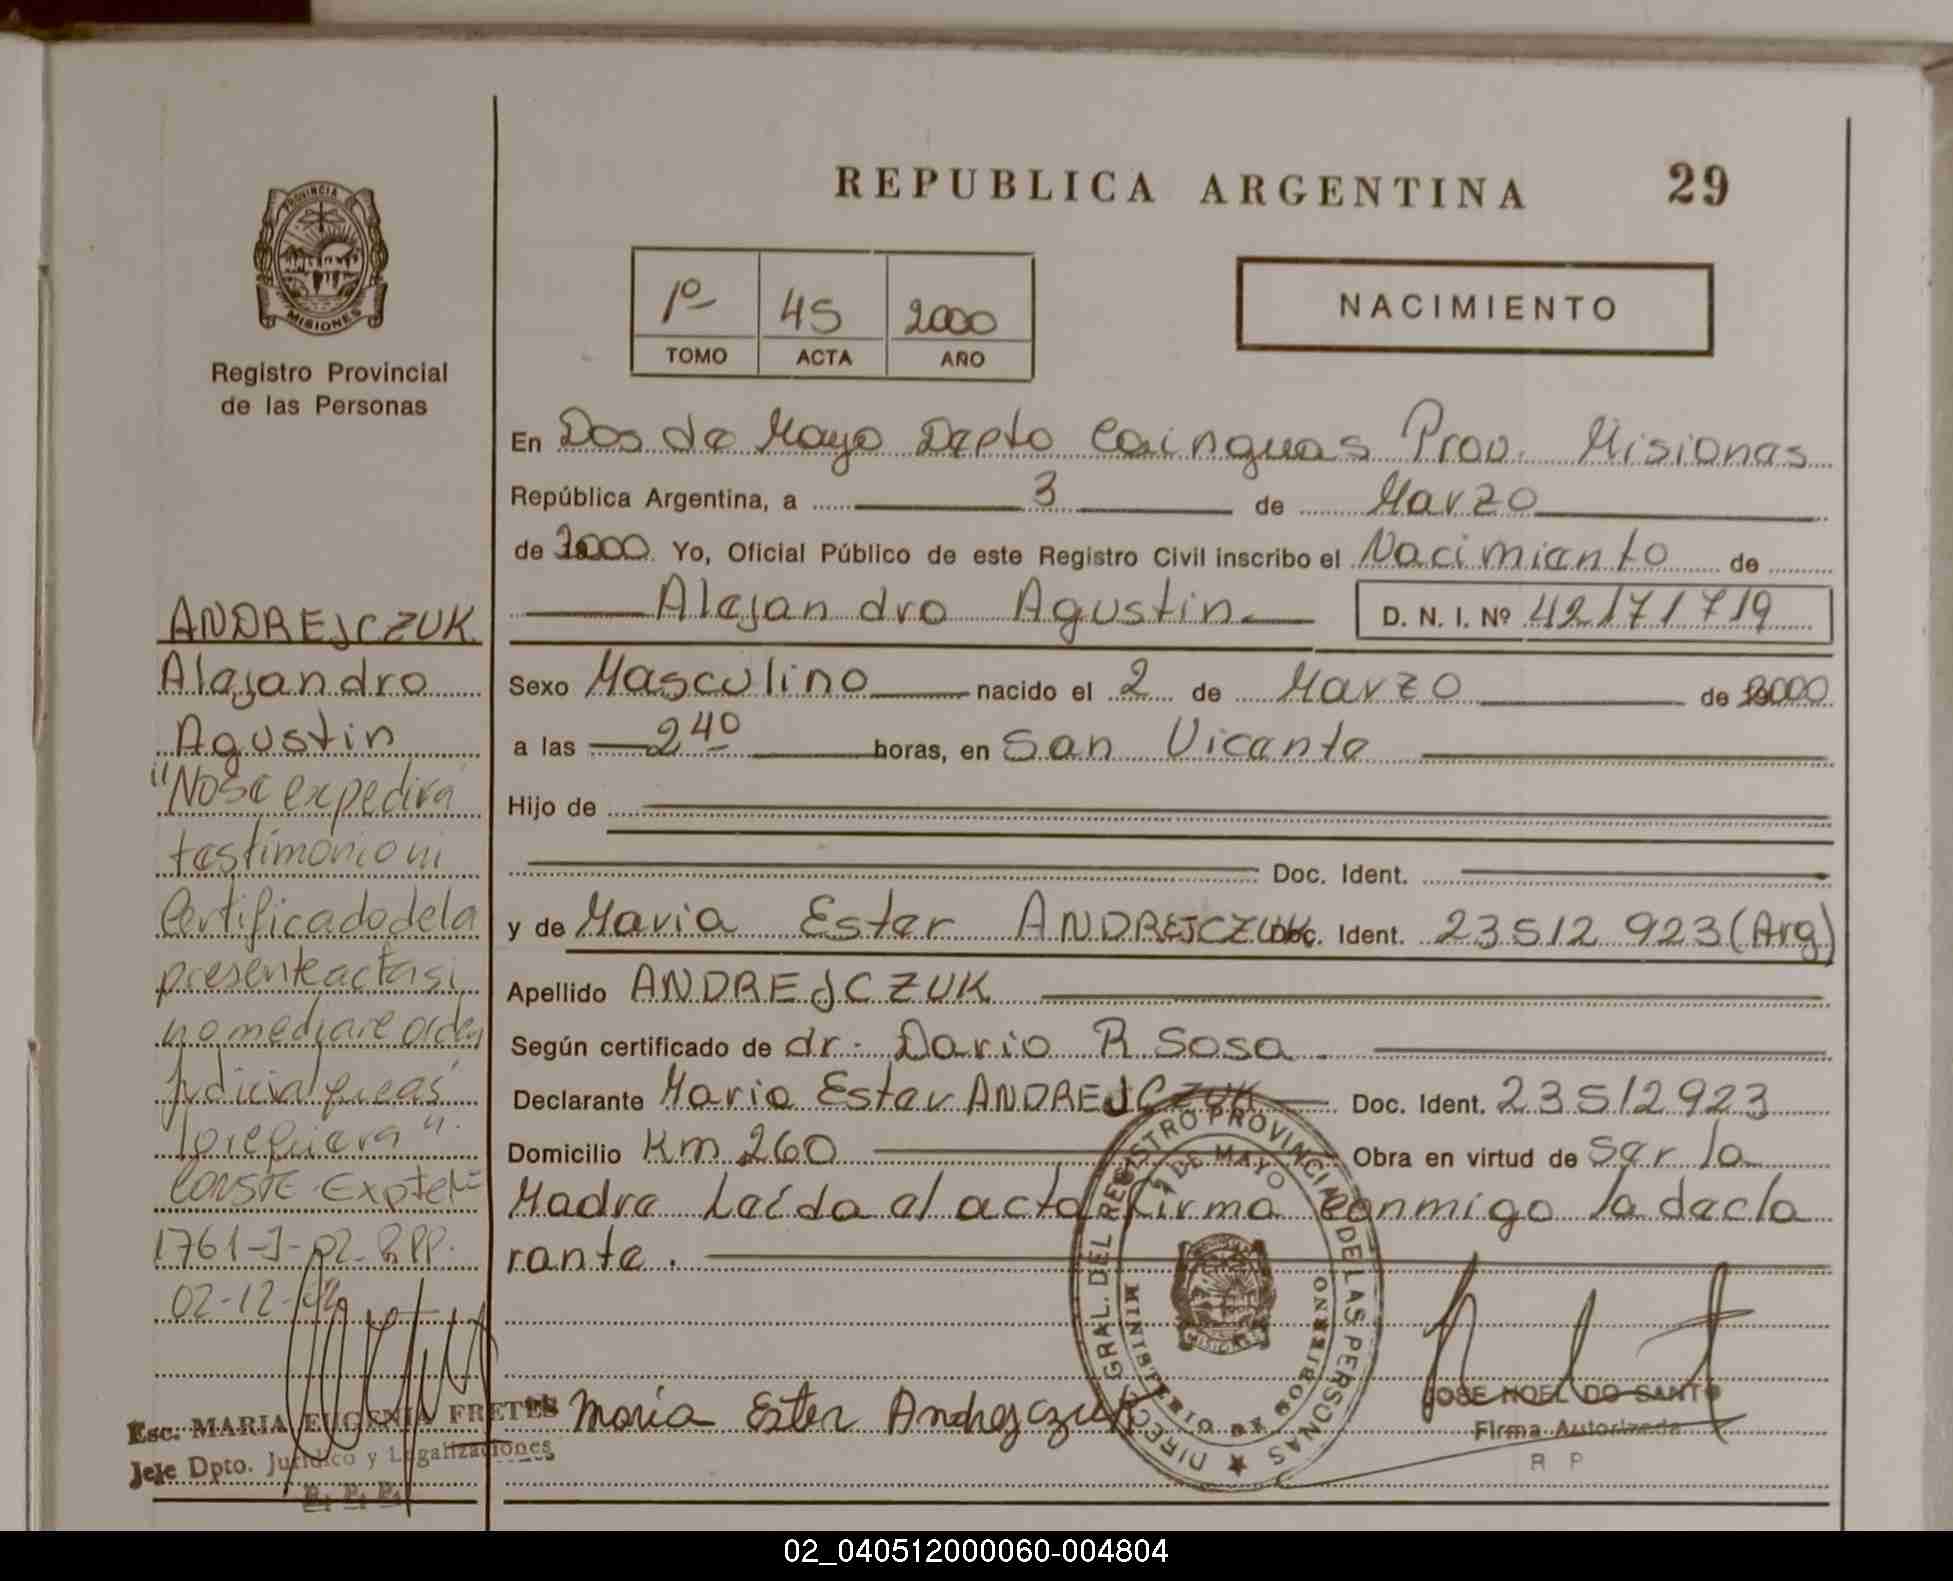 REPUBLICA ARGENTINA 29
PROVINCIA DE
MISIONES
Registro Provincial
de las Personas
1º 45 2000
TOMO ACTA AÑO
NACIMIENTO
En Dos de Mayo Depto Cainguas Prov. Misiones
República Argentina, a 3 de Marzo
de 2000 Yo, Oficial Público de este Registro Civil inscribo el Nacimiento de
Alejandro Agustin D. N. I. Nº 42171719
Sexo Masculino nacido el 2 de Marzo de 2000
a las 2 40 horas, en San Vicente
Hijo de
Doc. Ident.
y de Maria Ester ANDREJCZUK Doc. Ident. 23512923 (Arg)
Apellido ANDREJCZUK
Según certificado de dr. Dario R Sosa
Declarante Maria Ester ANDREJCZUK Doc. Ident. 23512923
Domicilio Km 260 Obra en virtud de ser la
Madre Leída el acta firma conmigo la decla
rante.
ANDREJCZUK
Alejandro
Agustin
"No se expedirá
testimonio ni
Certificado de la
presente acta si
no mediare orden
Judicial que así
lo requiera".
CONSTE Expte Nº
1761-J-02 R.P.P.
02-12-02
Esc. MARIA EUGENIA FRETES
Jefe Dpto. Jurídico y Legalizaciones
R. P. P.
Maria Ester Andrejczuk
DIREC. GRAL. DEL REGISTRO PROVINCIAL DE LAS PERSONAS
2 DE MAYO
MINISTERIO DE GOBIERNO
MISIONES
JOSE NOEL DO SANTO
Firma Autorizada
R P
02_040512000060-004804